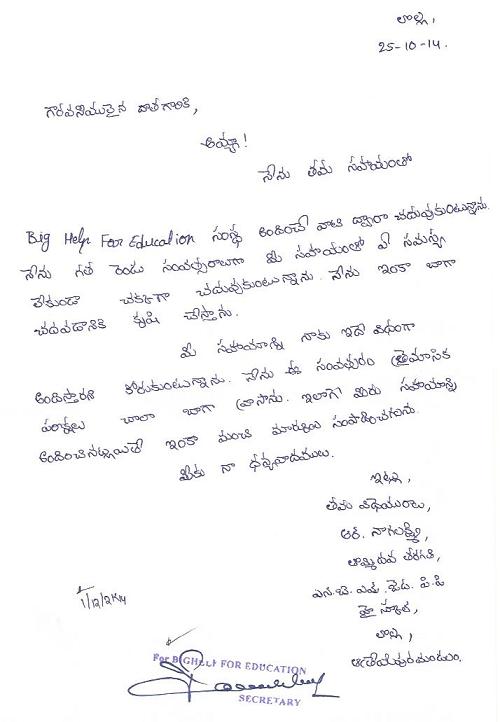 లొల్ల,
25-10-14.
గౌరవనీయులైన దాతగారికి,
అయ్యా!
నేను తమ సహాయంతో
Big Help For Education సంస్థ అందించే వాటి ద్వారా చదువుకుంటున్నాను.
నేను గత రెండు సంవత్సరాలుగా మీ సహాయంతో ఏ సమస్య
లేకుండా చక్కగా చదువుకుంటున్నాను. నేను ఇంకా బాగా
చదవడానికి కృషి చేస్తాను.
మీ సహాయాన్ని నాకు ఇదే విధంగా
అందిస్తారని కోరుకుంటున్నాను. నేను ఈ సంవత్సరం త్రైమాసిక
పరీక్షలు చాలా బాగా వ్రాసాను. ఇలాగే మీరు సహాయాన్ని
అందించినట్లయితే ఇంకా మంచి మార్కులు సంపాదించగలను.
మీకు నా ధన్యవాదములు.
ఇట్లు,
తమ విధేయురాలు,
ఆర్. నాగలక్ష్మి,
తొమ్మిదవ తరగతి,
ఎస్.బి.ఎష్.జెడ్.పి.పి
హై స్కూల్,
లొల్ల,
ఆత్రేయపురమండలం.
1/12/2k14
For BIGHELP FOR EDUCATION
SECRETARY